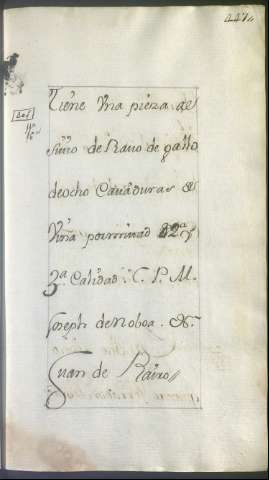 Tiene Vna pieza al
sitio de Rauo de gallo
de ocho Cauaduras de
Viña por mitad 2ª y
3ª Calidad: C. P. M.
Joseph de Noboa. &.
Juan de